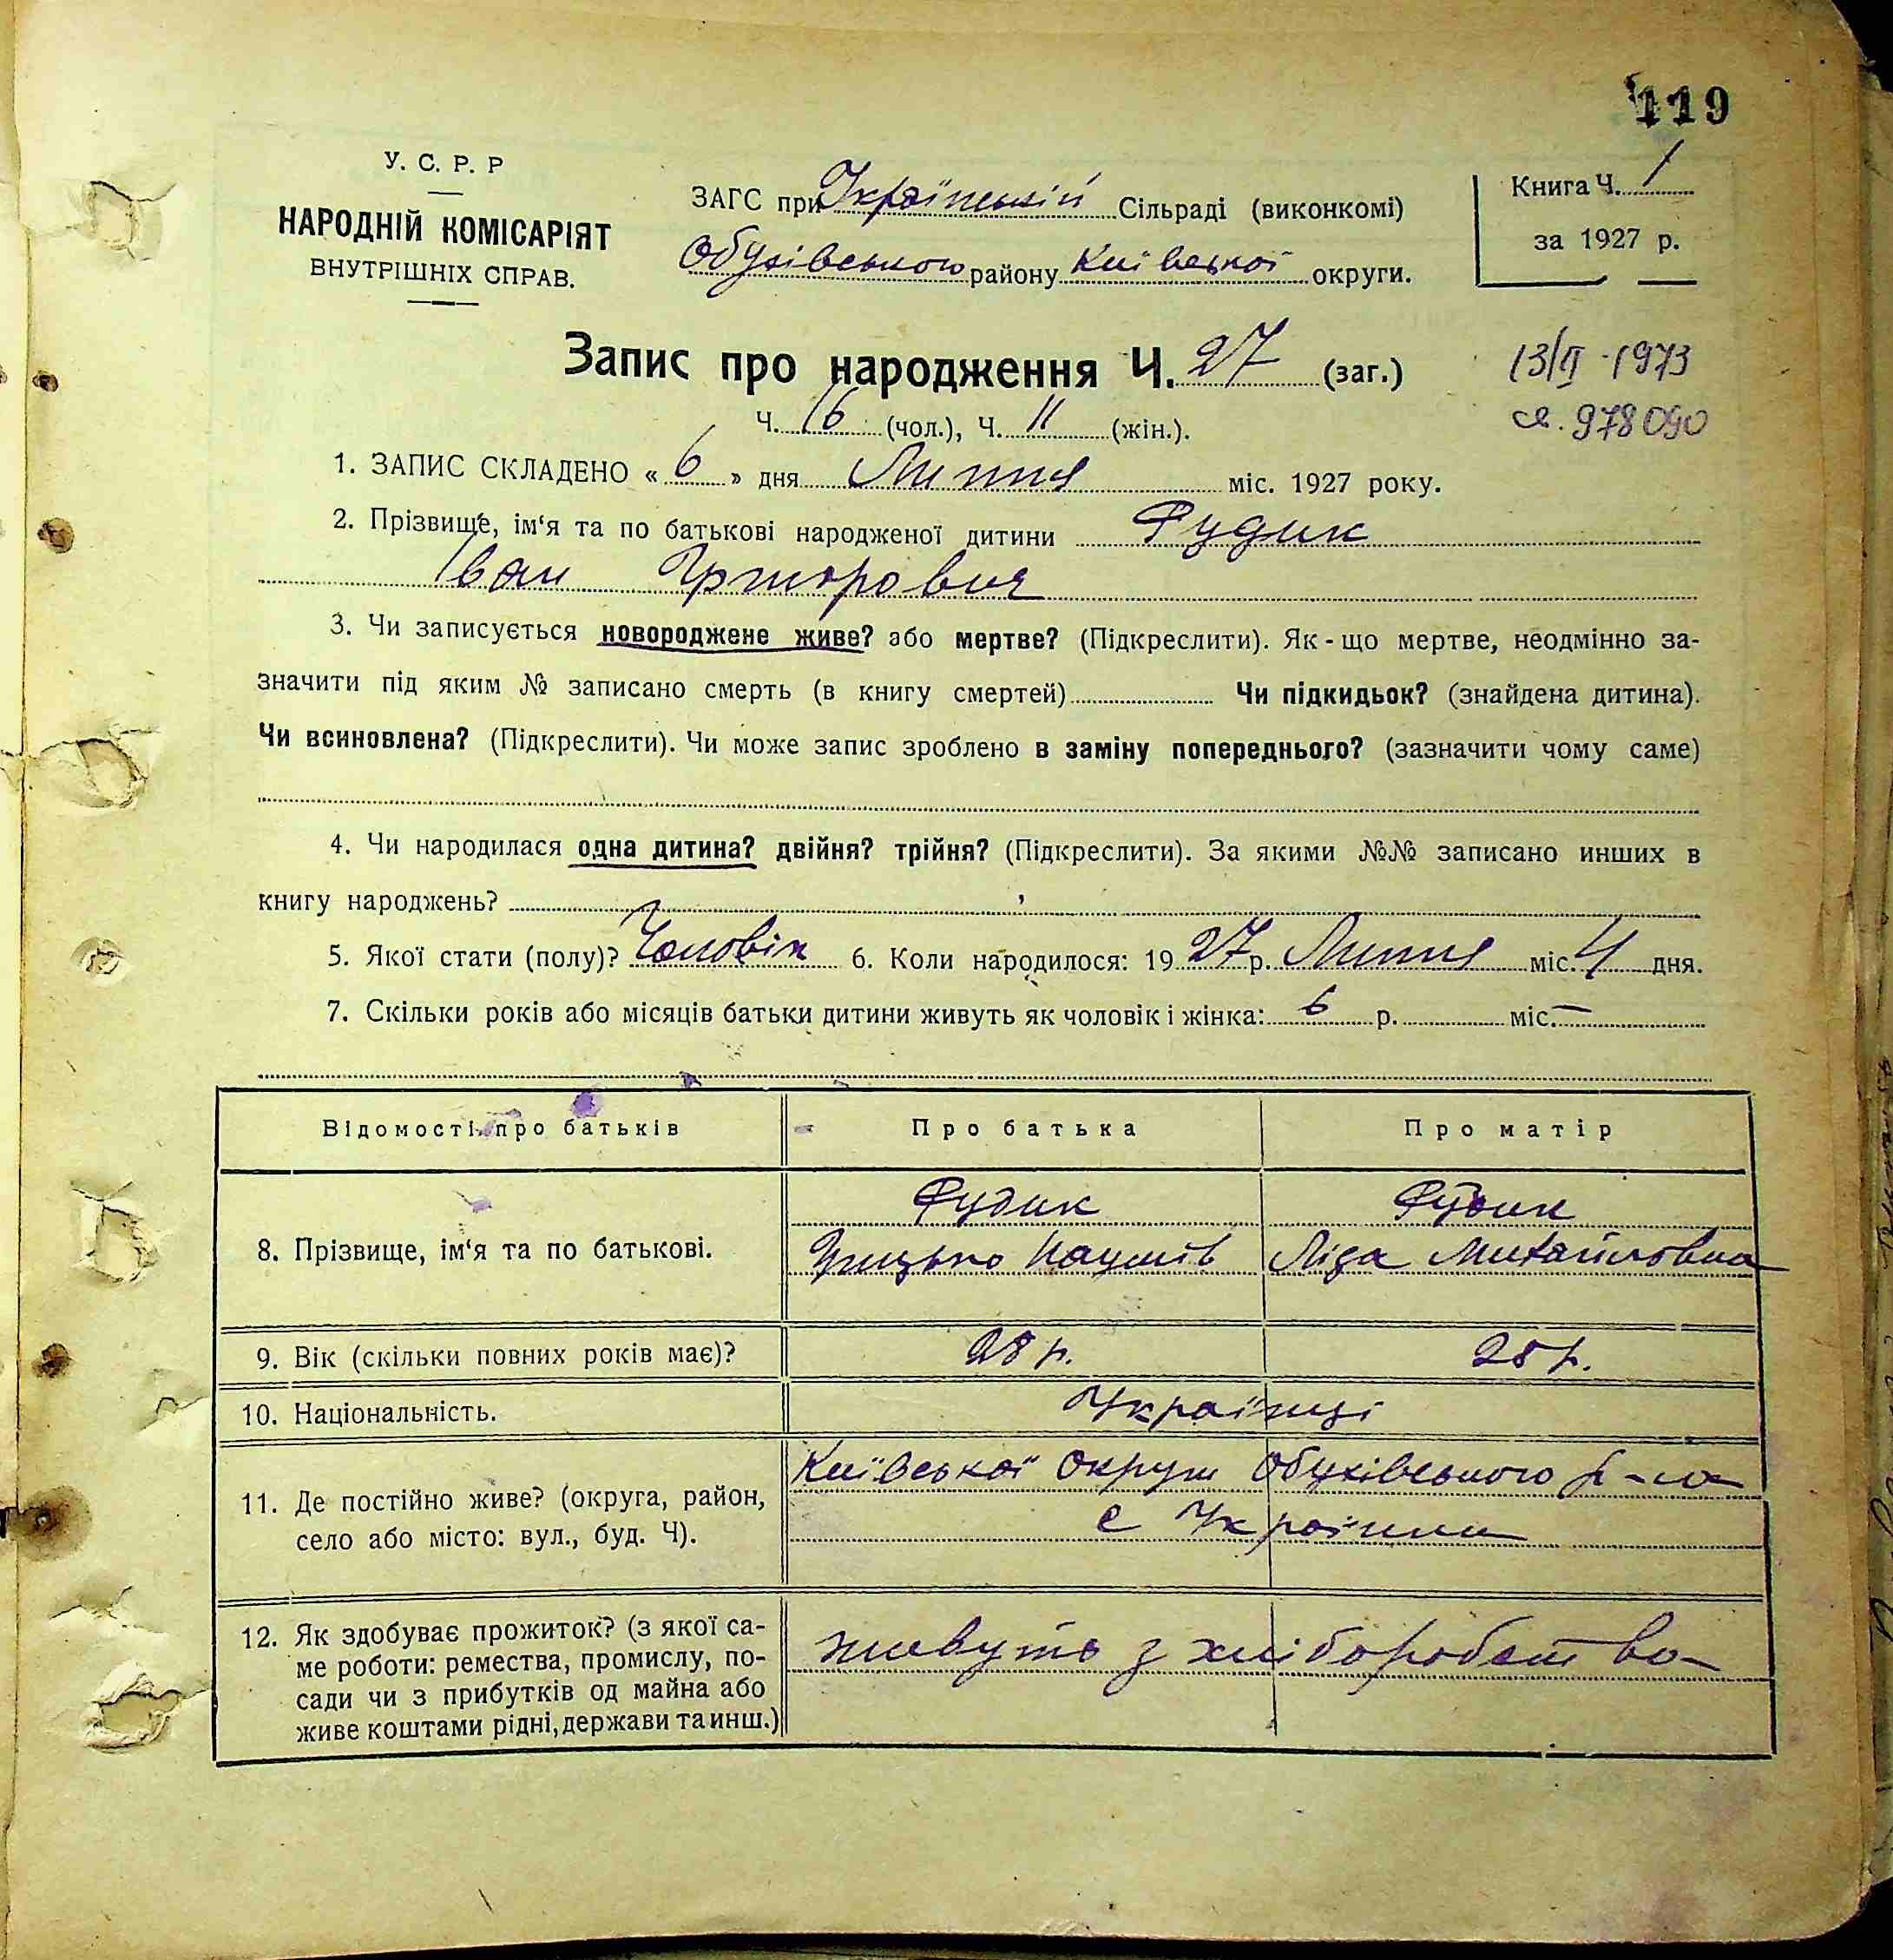 119
У. С. Р. Р
НАРОДНІЙ КОМІСАРІЯТ
ВНУТРІШНІХ СПРАВ.
ЗАГС при Українській Сільраді (виконкомі)
Обухівського району Київської округи.
Книга Ч. 1
за 1927 р.
Запис про народження Ч. 27 (заг.)
13/II - 1973
978090
Ч. 16 (чол.), Ч. 11 (жін.).
1. ЗАПИС СКЛАДЕНО « 6 » дня Липня міс. 1927 року.
2. Прізвище, ім‘я та по батькові народженої дитини Фудик
Іван Григорович
3. Чи записується новороджене живе? або мертве? (Підкреслити). Як - що мертве, неодмінно за-
значити під яким № записано смерть (в книгу смертей) Чи підкидьок? (знайдена дитина).
Чи всиновлена? (Підкреслити). Чи може запис зроблено в заміну попереднього? (зазначити чому саме)
4. Чи народилася одна дитина? двійня? трійня? (Підкреслити). За якими №№ записано инших в
книгу народжень?
5. Якої стати (полу)? Чоловік 6. Коли народилося: 19 27 р. Липня міс. 4 дня.
7. Скільки років або місяців батьки дитини живуть як чоловік і жінка: 6 р. міс. —
Відомості про батьків Про батька Про матір
Фудик Фудик
8. Прізвище, ім‘я та по батькові. Грицько Наумів Ліда Михайловна
9. Вік (скільки повних років має)? 28 р. 28 р.
10. Національність. Українці
Київської округи Обухівського р-на
11. Де постійно живе? (округа, район,
село або місто: вул., буд. Ч). с Українки
12. Як здобуває прожиток? (з якої са-
ме роботи: ремества, промислу, по- живуть з хліборобства
сади чи з прибутків од майна або
живе коштами рідні, держави та инш.)